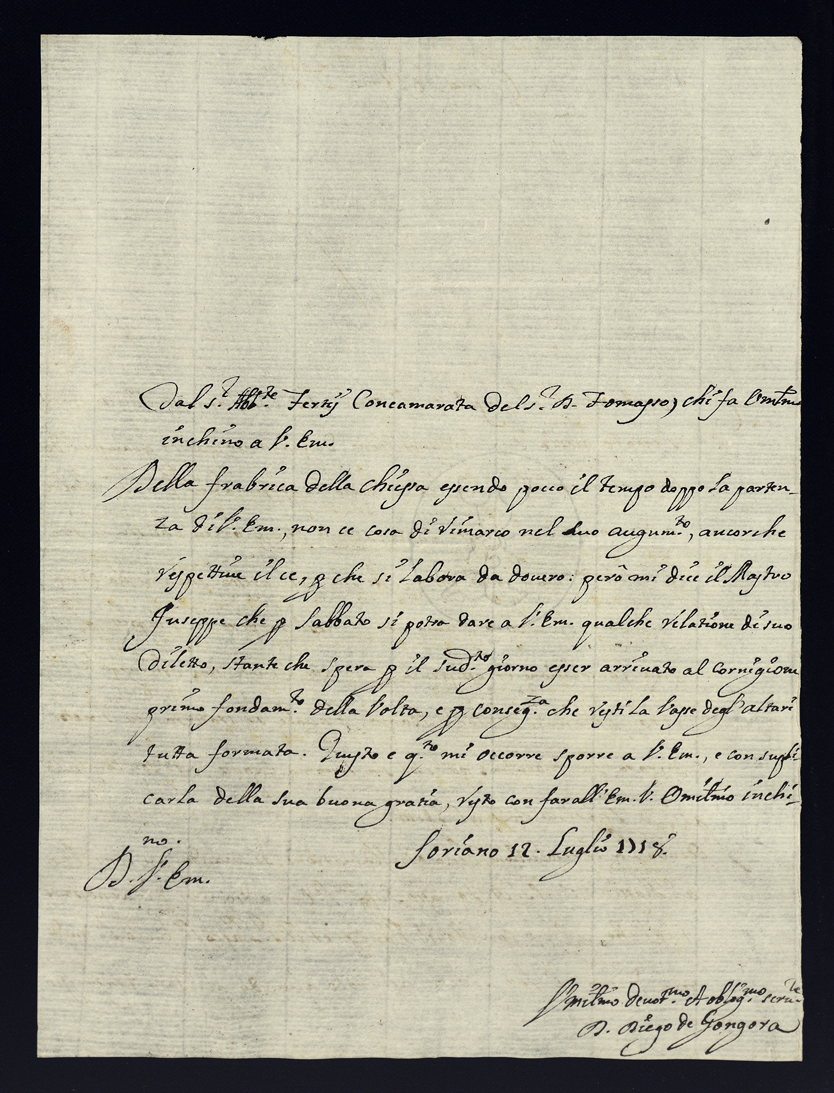 Dal s.r Abb.te Terzij Concamarata del s.r D. Tomasso, chi fa Omilmo
inchino a V. Em.
Della frabrica della chiesa essendo pocco il tempo doppo la parten-
za di V. Em., non ce cosa di rimarco nel suo augum.to, ancorche
rispettive il ce, p che si labora da dovero: però mi dice il Mastro
Giuseppe che p sabbato si potra dare a V. Em. qualche relatione di suo
diletto, stante che spera p il sud.to giorno esser arrivato al cornigione
primo fondam.to della volta, e p conseg.za che resti la base degl'altari
tutta formata. Questo e q.to mi occorre sporre a V. Em., e con supli
carla della sua buona gratia, resto con farall'Em. V. Omilmo inchi-
no.
Soriano 12. Luglio 1718.
D. V. Em.
Vmilmo devot.mo et oblig.mo serv.te
D. Diego de Gongora